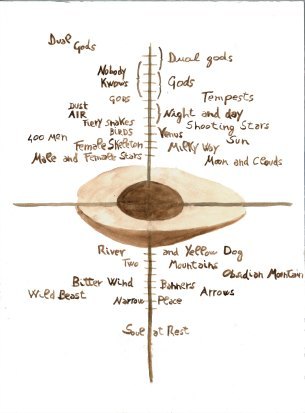 Dual
Gods
Dual gods
Nobody
Knows
Gods
GODS
Tempests
DUST
AIR
Night and day
Fiery snakes
Shooting Stars
BIRDS
Venus
400 men
Female Skeleton
Milky Way
Sun
Male and Female Stars
Moon and Clouds
River and Yellow Dog
Two Mountains
Obsidian Mountain
Bitter Wind
Banners
Wild Beast
Arrows
Narrow Place
Soul at Rest